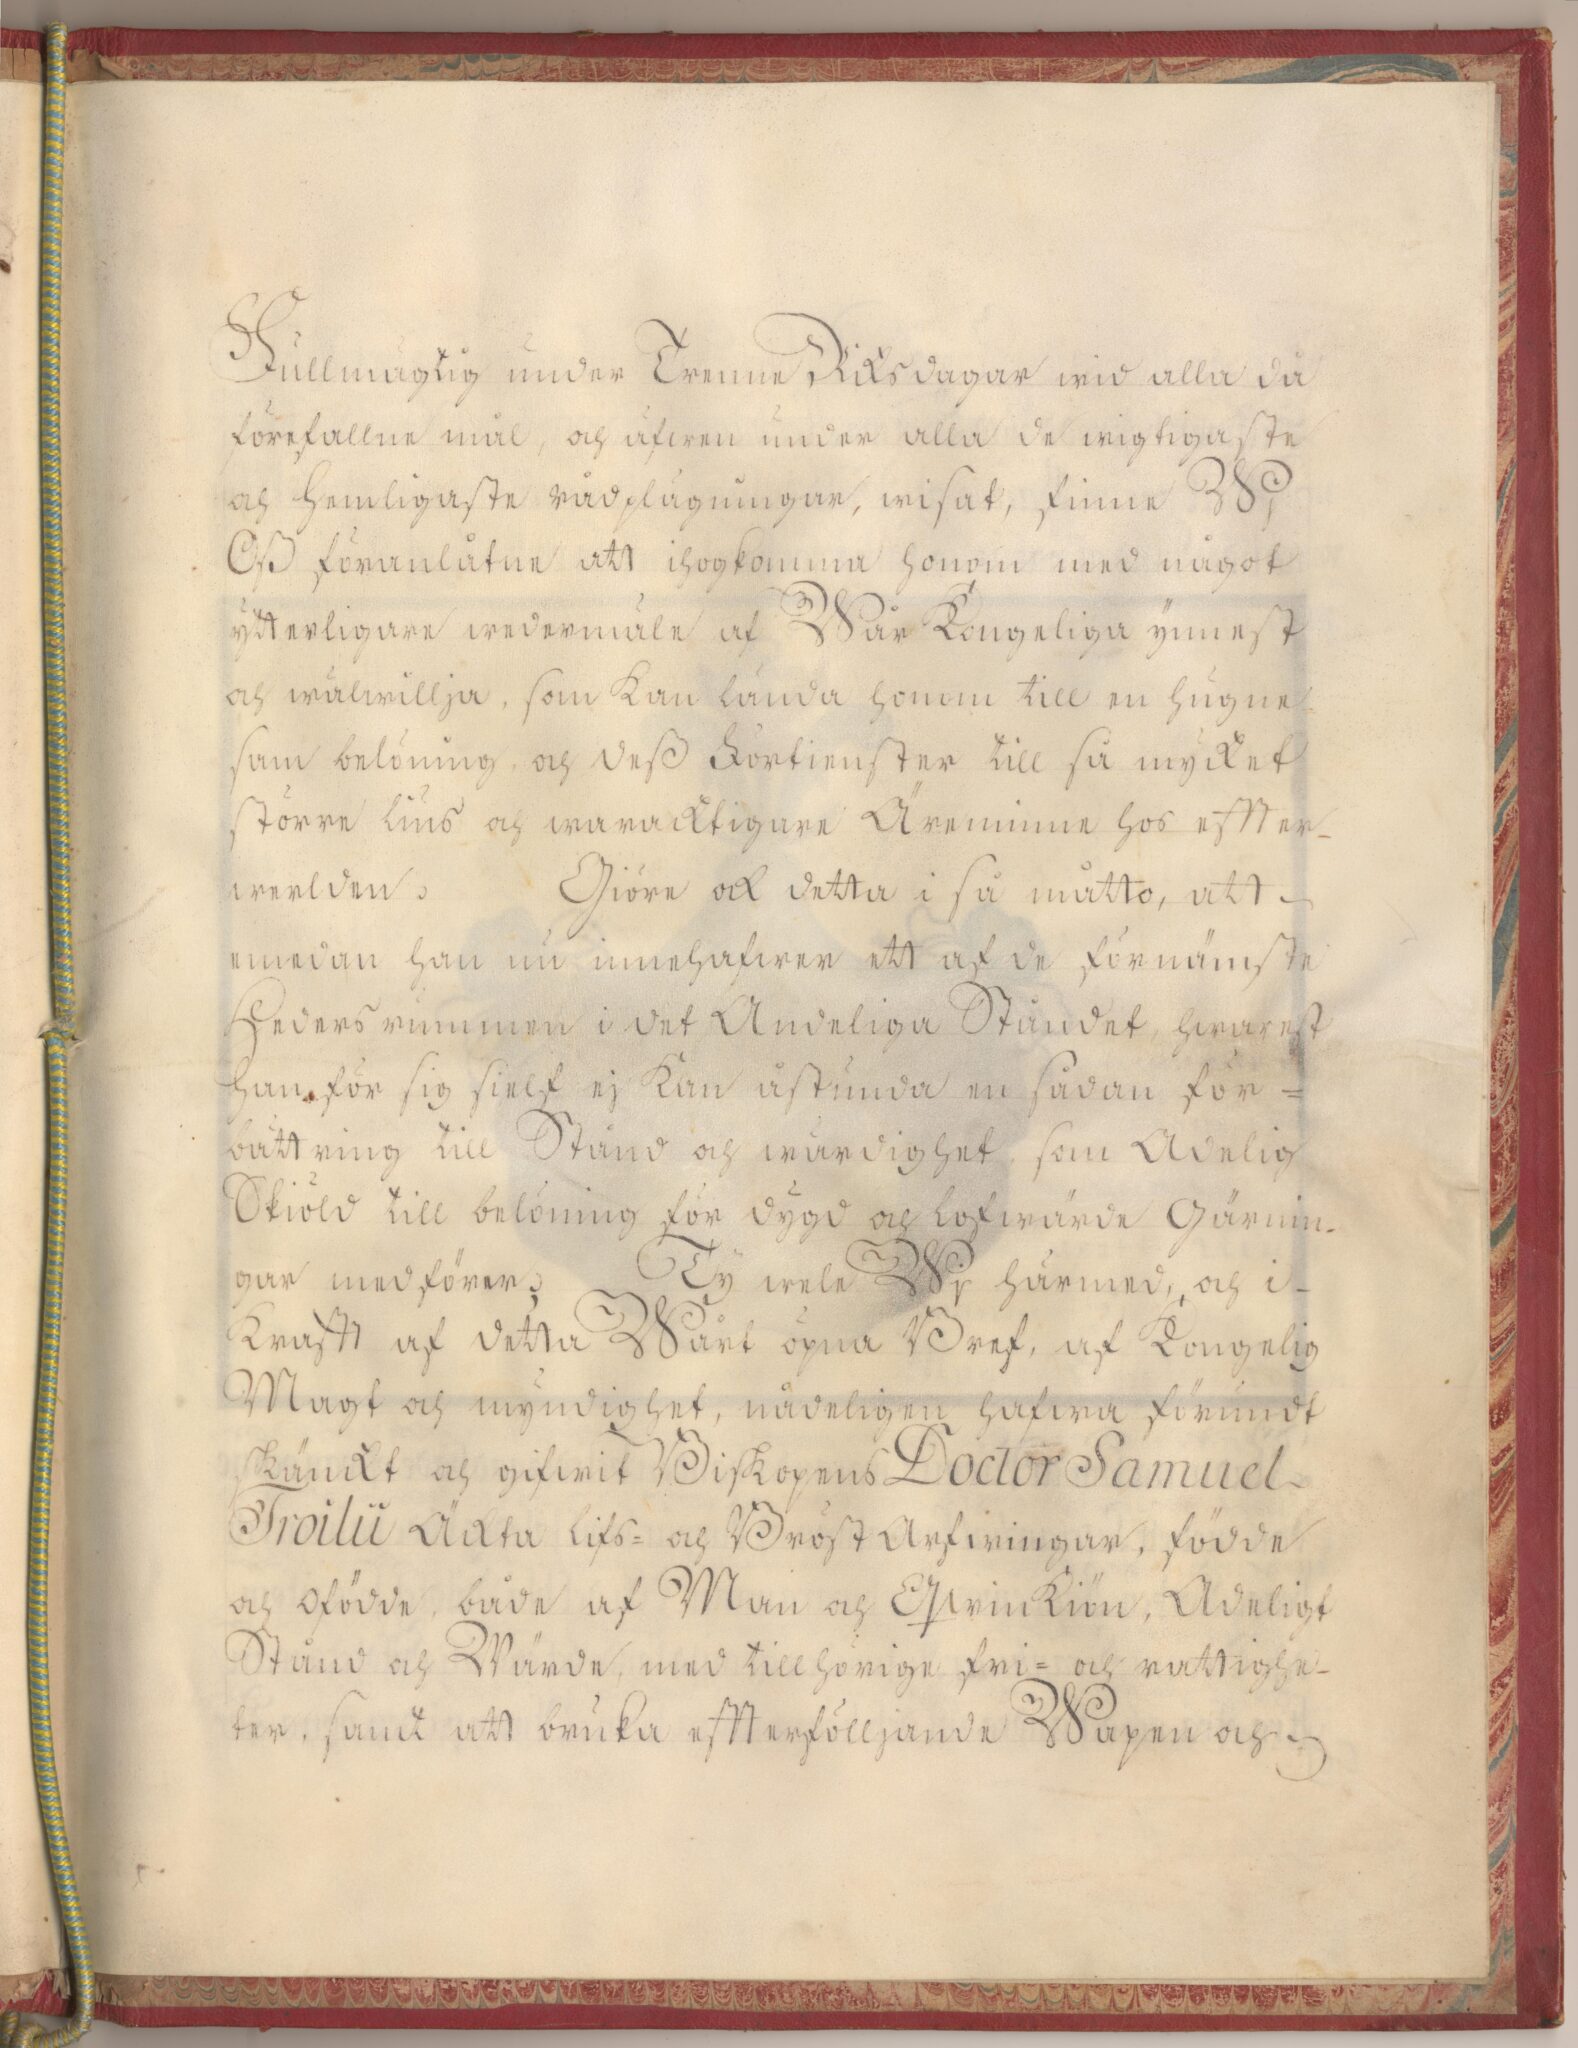 Fullmägtig under Trenne Riksdagar wid alla då
förefallne mål, och äfwen under alla de wigtigaste
och hemligaste rådplägningar, wisat, finne Wij
Oß föranlåtne att ihogkomma honom med något
ytterligare wedermäle af Wår Kongeliga ynnest
och wälwillja, som kan lända honom till en hugne-
sam belöning, och deß förtienster till så mycket
större lius och waracktigare Äreminne hos effter-
werlden; Giöre ock detta i så måtto, att
emedan han nu innehafwer ett af de förnämste
Hedersrummen i det Andeliga Ståndet, hwarest
han för sig sielf ej kan åstunda en sådan för=
bättring till Stånd och wärdighet, som Adelig
Skiöld till belöning för dygd och lofwärde Gärnin-
gar medförer; Ty wele Wij härmed, och i
Krafft af detta Wårt öpna Bref, af Kongelig
Magt och myndighet, nådeligen hafwa förundt
skänckt och gifwit Biskopens Doctor Samuel
Troilii Äckta Lifs= och Bröst Arfwingar, födde
och ofödde, både af Man och Qwinkiön, Adeligt
Stånd och Wärde, med tillhörige fri= och rättighe-
ter, samt att bruka effterfölljande Wapen och